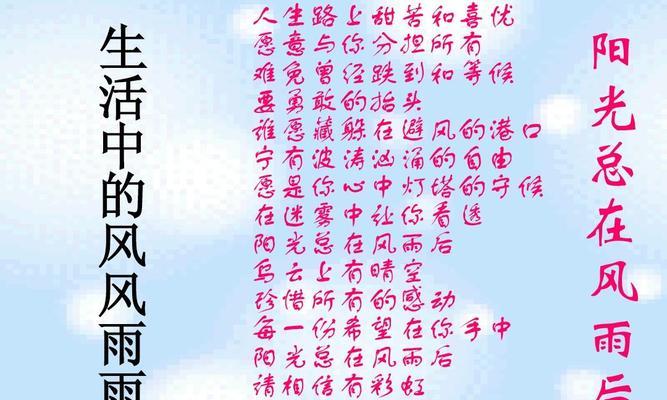 生活中的风风雨雨
人生路上甜苦和喜优
愿意与你分担所有
难免曾经跌到和等候
要勇敢的抬头
谁愿藏躲在避风的港口
宁有波涛汹涌的自由
愿是你心中灯塔的守候
在迷雾中让你看透
阳光总在风雨后
乌云上有晴空
珍借所有的感动
每一份希望在你手中
阳光总在风雨后
请相信有彩虹
阳光总在风雨后